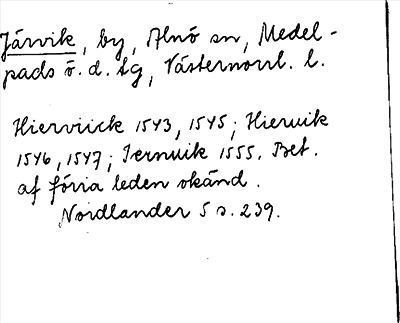 Järvik, by, Alnö sn, Medel-
pads ö. d. tg, Västernorrl. l.
Hierviick 1543, 1545; Hiervik
1546, 1547; Iernuik 1555. Bet.
af förra leden okänd.
Nordlander 5 s. 239.